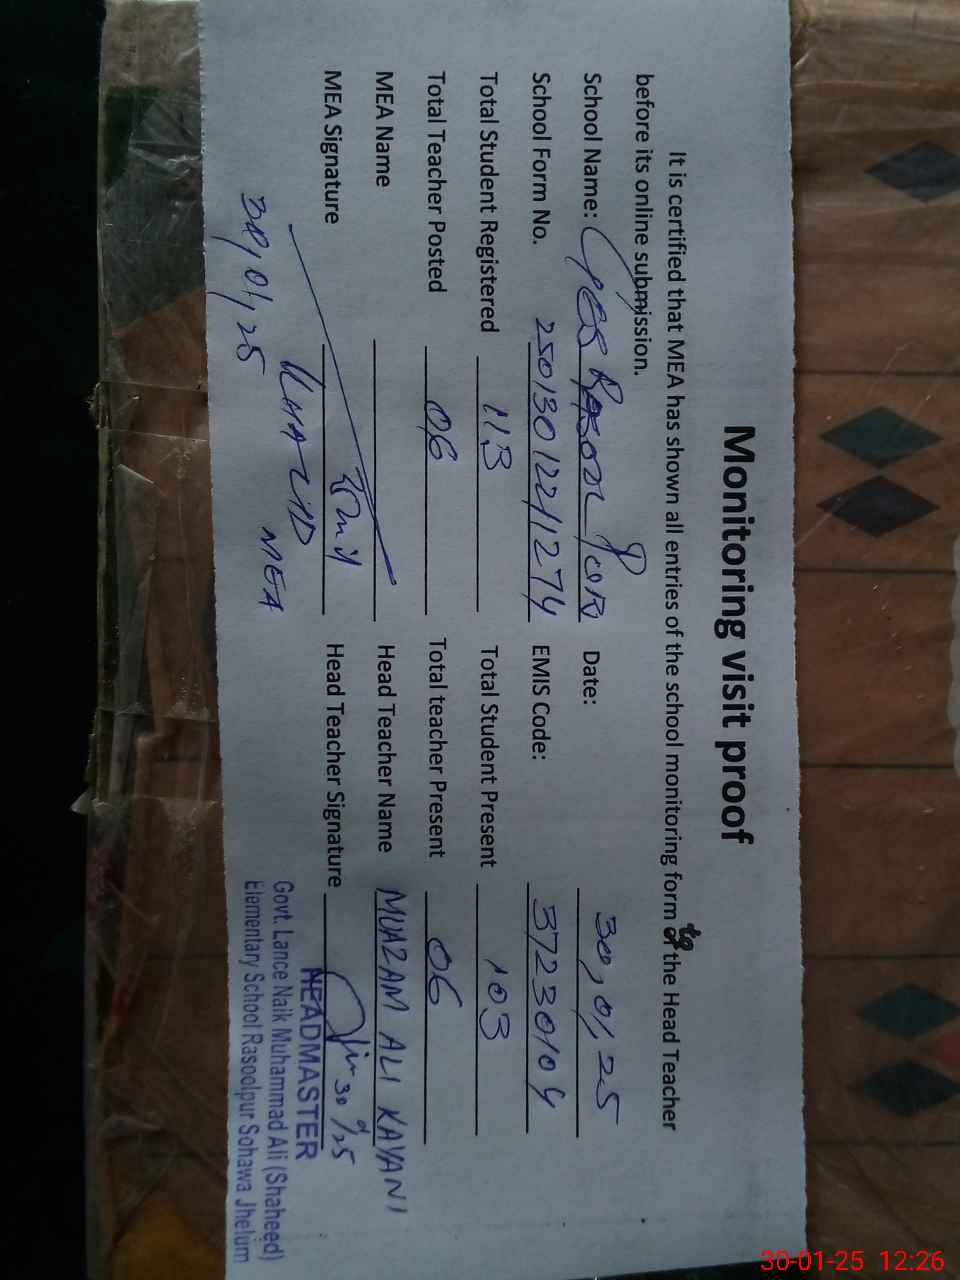 Monitoring visit proof
It is certified that MEA has shown all entries of the school monitoring form to the Head Teacher
before its online submission.
School Name: GES Rasool Pur Date: 30,01,25
School Form No. 250130122411274 EMIS Code: 37230104
Total Student Registered 113 Total Student Present 103
Total Teacher Posted 06 Total teacher Present 06
MEA Name Head Teacher Name MUAZAM ALI KAYANI
MEA Signature Head Teacher Signature 30/01/25
KHALID MEA
30,01,25
HEADMASTER
Govt. Lance Naik Muhammad Ali (Shaheed)
Elementary School Rasoolpur Sohawa Jhelum
30-01-25 12:26